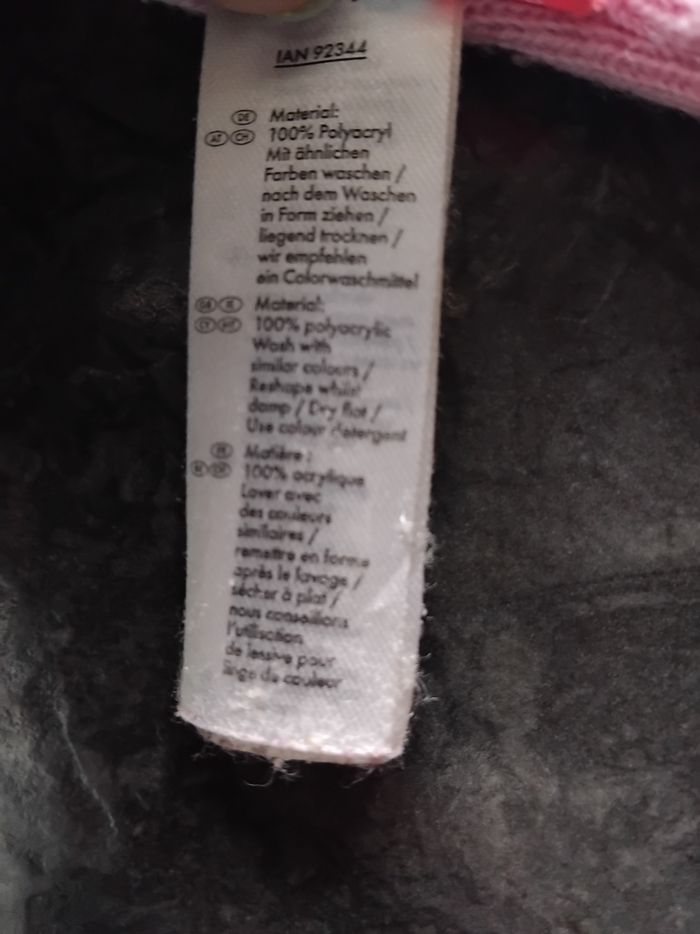 IAN 92344
DE Material:
AT CH 100% Polyacryl
Mit ähnlichen
Farben waschen /
nach dem Waschen
in Form ziehen /
liegend trocknen /
wir empfehlen
ein Colorwaschmittel
GB IE Material:
CY MT 100% polyacrylic
Wash with
similar colours /
Reshape whilst
damp / Dry flat /
Use colour detergent
FR Matière :
100% acrylique
Laver avec
des couleurs
similaires /
remettre en forme
après le lavage /
sécher à plat /
nous conseillons
l'utilisation
de lessive pour
linge de couleur